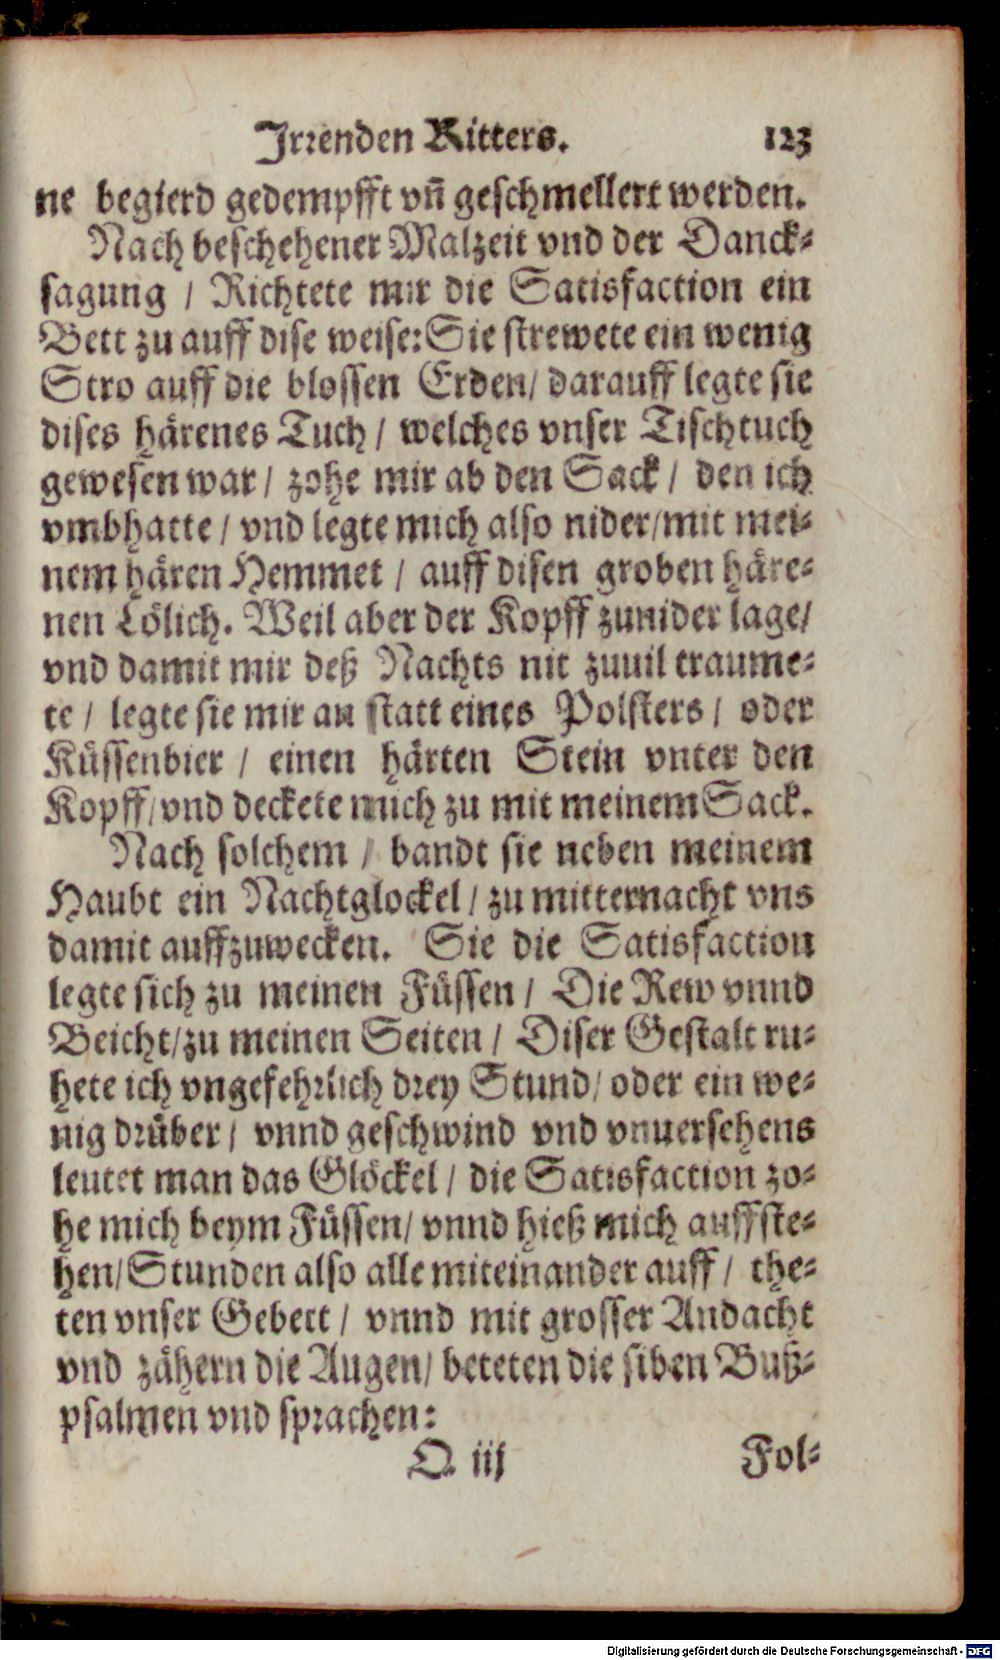 Irrenden Ritters. 123
ne begierd gedempfft vñ geschmellert werden.
Nach beschehener Malzeit vnd der Danck-
sagung / Richtete mir die Satisfaction ein
Bett zu auff dise weise: Sie strewete ein wenig
Stro auff die blossen Erden / darauff legte sie
dises härenes Tuch / welches vnser Tischtuch
gewesen war / zohe mir ab den Sack / den ich
vmbhatte / vnd legte mich also nider / mit mei-
nem hären Hemmet / auff disen groben häre-
nen Lölich. Weil aber der Kopff zunider lage /
vnd damit mir deß Nachts nit zuuil traume-
te / legte sie mir an statt eines Polsters / oder
Küssenbier / einen härten Stein vnter den
Kopff / vnd deckete mich zu mit meinem Sack.
Nach solchem / bandt sie neben meinem
Haubt ein Nachtglockel / zu mitternacht vns
damit auffzuwecken. Sie die Satisfaction
legte sich zu meinen Füssen / Die Rew vnnd
Beicht / zu meinen Seiten / Diser Gestalt ru-
hete ich vngefehrlich drey Stund / oder ein we-
nig drüber / vnnd geschwind vnd vnuersehens
leutet man das Glöckel / die Satisfaction zo-
he mich beym Füssen / vnnd hieß mich auffste-
hen / Stunden also alle miteinander auff / the-
ten vnser Gebett / vnnd mit grosser Andacht
vnd zähern die Augen / beteten die siben Buß-
psalmen vnd sprachen:
Q iij Fol-
Digitalisierung gefördert durch die Deutsche Forschungsgemeinschaft - DFG